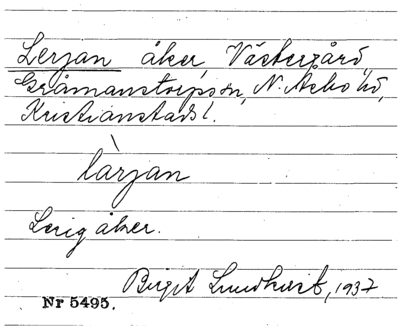 Lerjan åker, Västergård,
Gråmanstorps sn, N. Åsbo hd,
Kristianstads l.
làrjan
Lerig åker.
Birgit Lundkvist, 1937
Nr 5495.